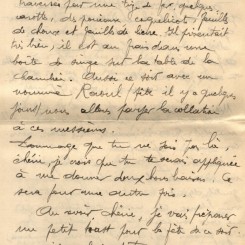 traversé par une tige de fer, quelques
carotte, du poireau (coquelicot), feuille
de choux et feuille de lierre. Il présentait
très bien, il est au frais dans une
boîte de singe sur la table de la
chambre. Aussi ce soir avec un
nommé Raoul, fêté il y a quelques
jours, nous allons payer la collation
à ces messieurs.
Dommage que tu ne sois pas là,
chérie, je crois que tu te serais appliquée
à me donner deux bons baisers. Ce
sera pour une autre fois.
Au revoir, chérie, je vais préparer
un petit toast pour la fête de ce soir